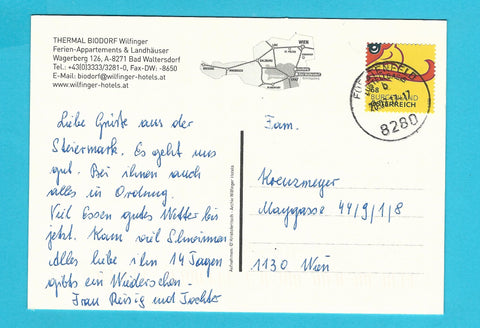 THERMAL BIODORF Wilfinger
Ferien-Appartements & Landhäuser
Wagerberg 126, A-8271 Bad Waltersdorf
Tel.: +43(0)3333/3281-0, Fax-DW: -8650
E-Mail: biodorf@wilfinger-hotels.at
www.wilfinger-hotels.at
WIEN
LINZ
SALZBURG
GRAZ
FÜRSTENFELD
8280
BURGENLAND
ÖSTERREICH
Liebe Grüße aus der
Steiermark. Es geht uns
gut. Bei ihnen auch
alles in Ordnung.
Viel Essen gutes Wetter bis
jetzt. Kann viel Schwimmen
Alles liebe in 14 Tagen
gibts ein Wiedersehen.
Frau Reisig und Tochter
Fam.
Kreuzmeyer
Maygasse 44/9/1/8
1130 Wien